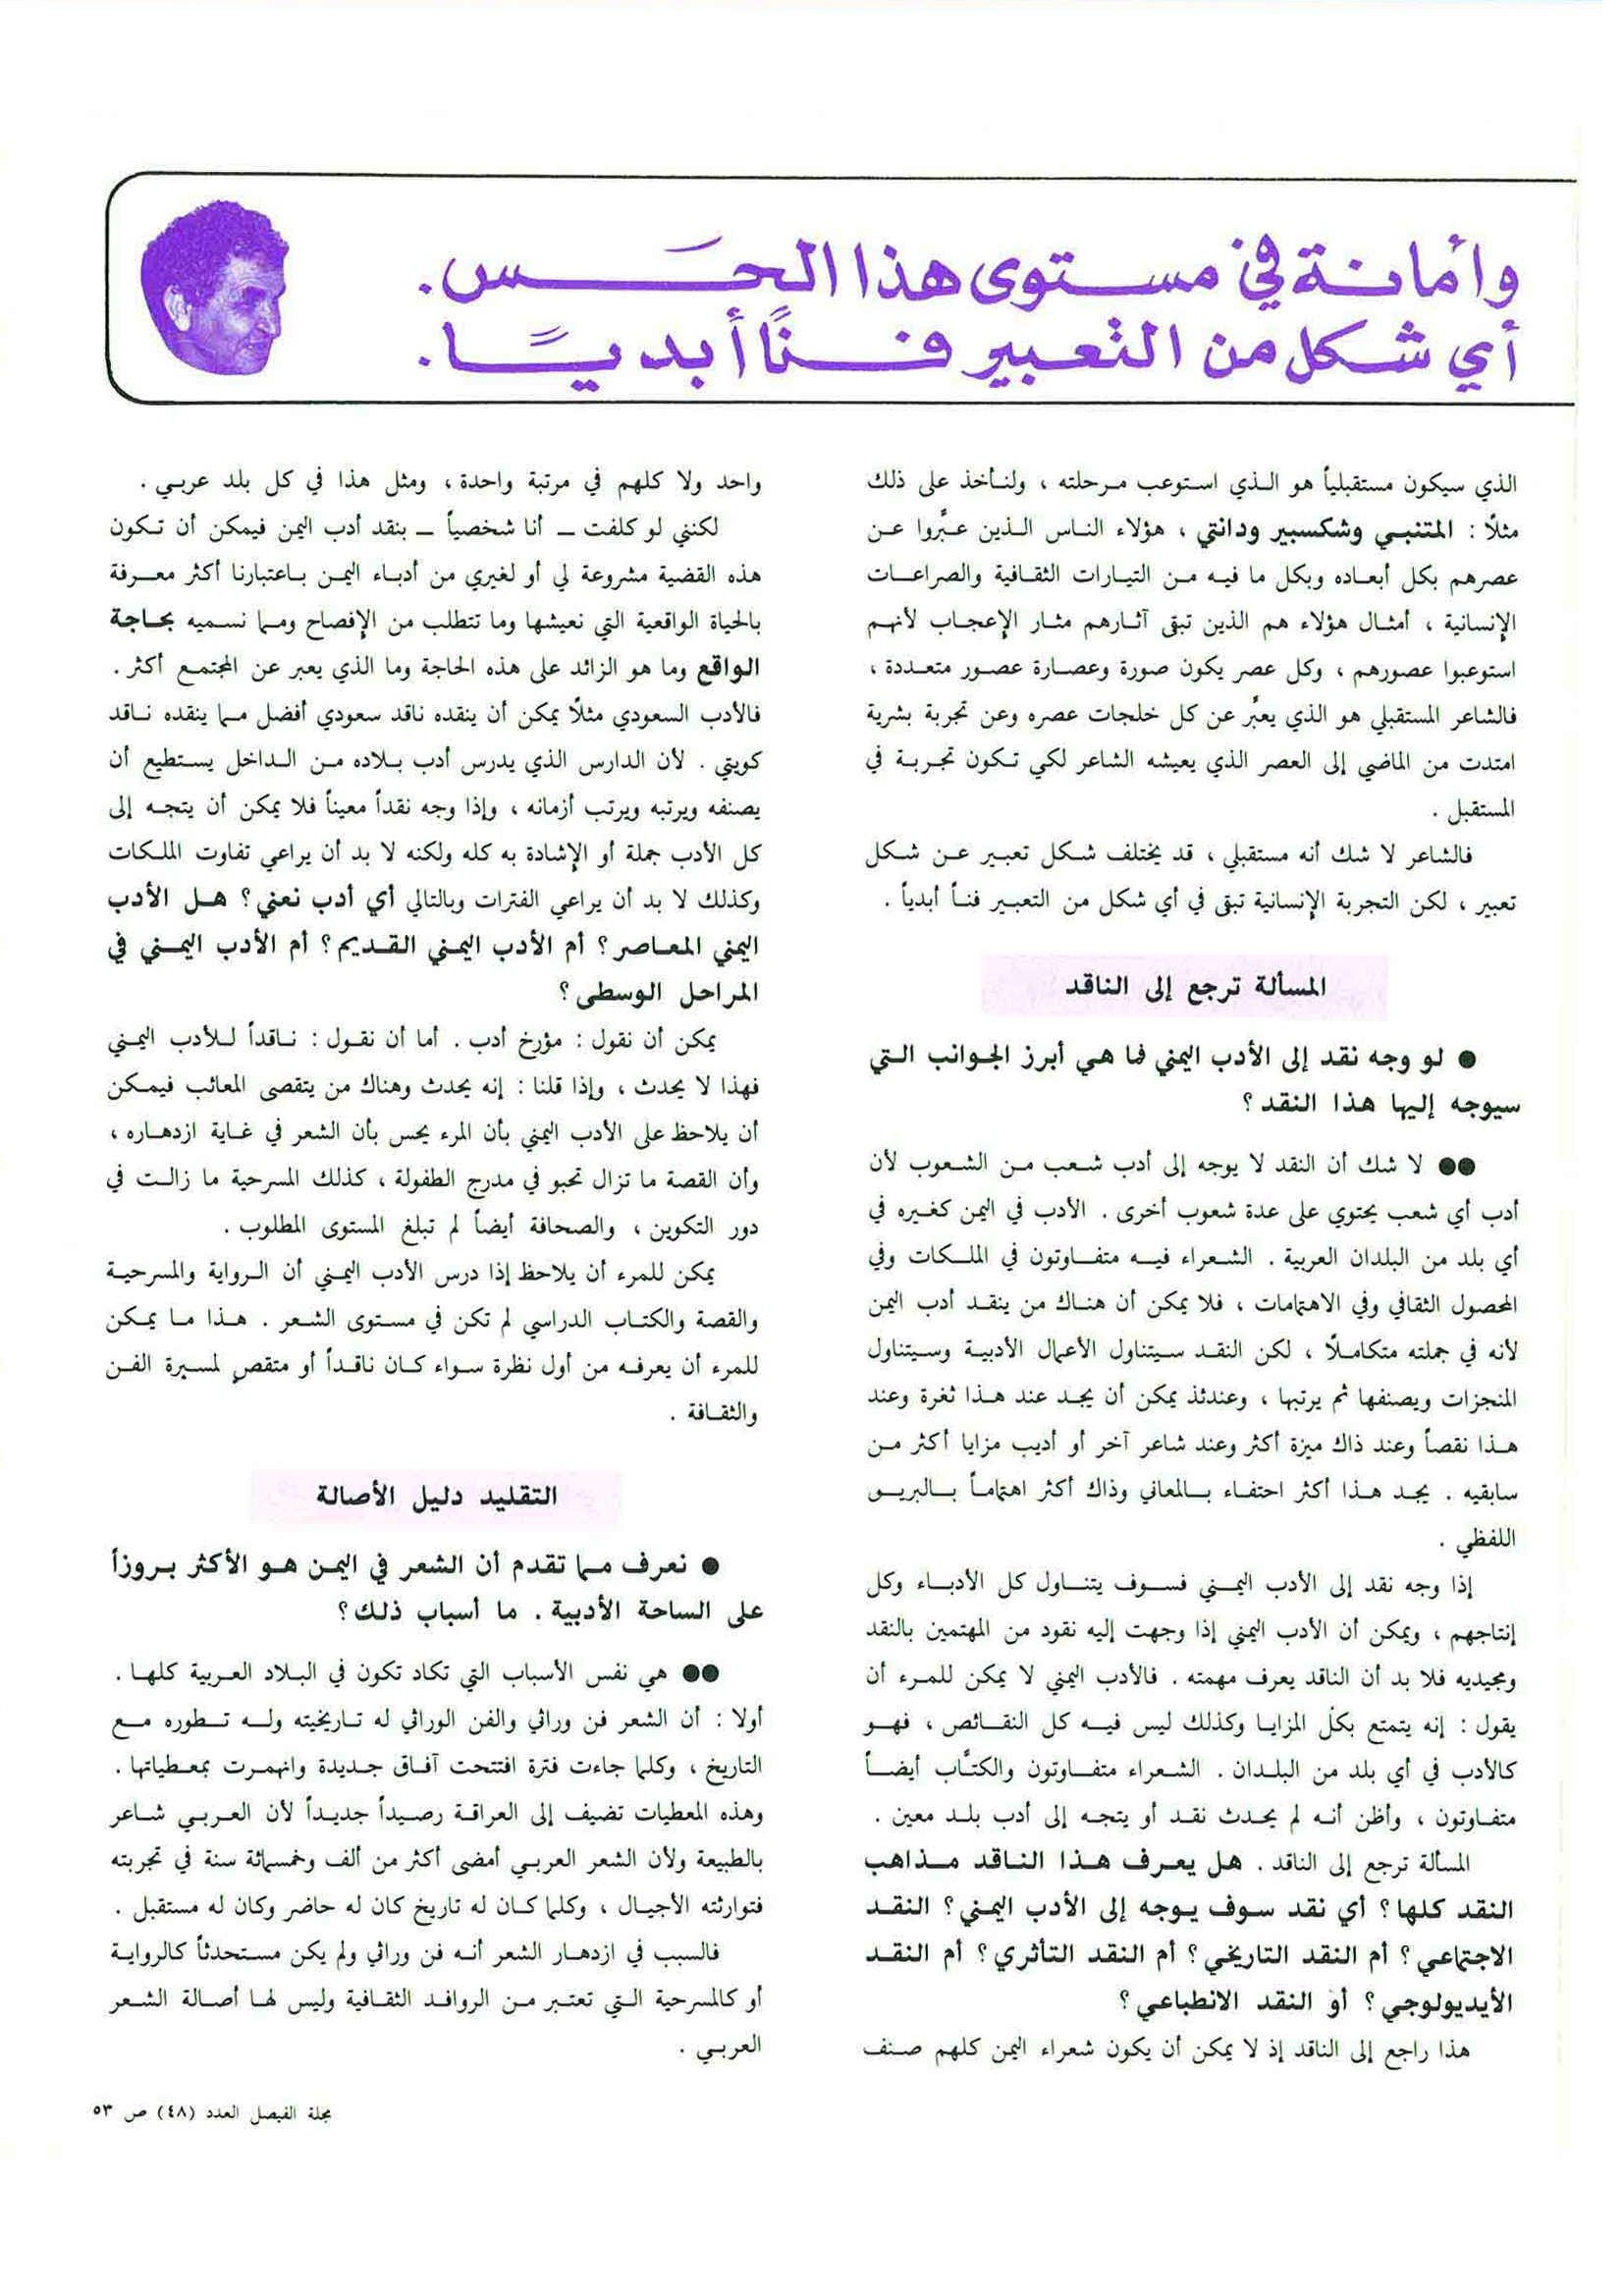 وأمانة في مستوى هذا الحس .
أي شكل من التعبير فنًا أبديًا .
الذي سيكون مستقبلياً هو الذي استوعب مرحلته ، ولنأخذ على ذلك
مثلًا : المتنبي وشكسبير ودانتي ، هؤلاء الناس الذين عبَّروا عن
عصرهم بكل أبعاده وبكل ما فيه من التيارات الثقافية والصراعات
الإنسانية ، أمثال هؤلاء هم الذين تبقى آثارهم مثار الإعجاب لأنهم
استوعبوا عصورهم ، وكل عصر يكون صورة وعصارة عصور متعددة ،
فالشاعر المستقبلي هو الذي يعبِّر عن كل خلجات عصره وعن تجربة بشرية
امتدت من الماضي إلى العصر الذي يعيشه الشاعر لكي تكون تجربة في
المستقبل .
فالشاعر لا شك أنه مستقبلي ، قد يختلف شكل تعبير عن شكل
تعبير ، لكن التجربة الإنسانية تبقى في أي شكل من التعبير فناً أبدياً .
المسألة ترجع إلى الناقد
● لو وجه نقد إلى الأدب اليمني فما هي أبرز الجوانب التي
سيوجه إليها هذا النقد ؟
●● لا شك أن النقد لا يوجه إلى أدب شعب من الشعوب لأن
أدب أي شعب يحتوي على عدة شعوب أخرى . الأدب في اليمن كغيره في
أي بلد من البلدان العربية . الشعراء فيه متفاوتون في الملكات وفي
المحصول الثقافي وفي الاهتمامات ، فلا يمكن أن هناك من ينقد أدب اليمن
لأنه في جملته متكاملًا ، لكن النقد سيتناول الأعمال الأدبية وسيتناول
المنجزات ويصنفها ثم يرتبها ، وعندئذ يمكن أن يجد عند هذا ثغرة وعند
هذا نقصاً وعند ذاك ميزة أكثر وعند شاعر آخر أو أديب مزايا أكثر من
سابقيه . يجد هذا أكثر احتفاء بالمعاني وذاك أكثر اهتماماً بالبريق
اللفظي .
إذا وجه نقد إلى الأدب اليمني فسوف يتناول كل الأدباء وكل
إنتاجهم ، ويمكن أن الأدب اليمني إذا وجهت إليه نقود من المهتمين بالنقد
ومجيديه فلا بد أن الناقد يعرف مهمته . فالأدب اليمني لا يمكن للمرء أن
يقول : إنه يتمتع بكل المزايا وكذلك ليس فيه كل النقائص ، فهو
كالأدب في أي بلد من البلدان . الشعراء متفاوتون والكتَّاب أيضاً
متفاوتون ، وأظن أنه لم يحدث نقد أو يتجه إلى أدب بلد معين .
المسألة ترجع إلى الناقد . هل يعرف هذا الناقد مذاهب
النقد كلها ؟ أي نقد سوف يوجه إلى الأدب اليمني ؟ النقد
الاجتماعي ؟ أم النقد التاريخي ؟ أم النقد التأثري ؟ أم النقد
الأيديولوجي ؟ أو النقد الانطباعي ؟
هذا راجع إلى الناقد إذ لا يمكن أن يكون شعراء اليمن كلهم صنف
واحد ولا كلهم في مرتبة واحدة ، ومثل هذا في كل بلد عربي .
لكنني لو كلفت ــ أنا شخصياً ــ بنقد أدب اليمن فيمكن أن تكون
هذه القضية مشروعة لي أو لغيري من أدباء اليمن باعتبارنا أكثر معرفة
بالحياة الواقعية التي نعيشها وما تتطلب من الإفصاح وما نسميه بحاجة
الواقع وما هو الزائد على هذه الحاجة وما الذي يعبر عن المجتمع أكثر .
فالأدب السعودي مثلًا يمكن أن ينقده ناقد سعودي أفضل مما ينقده ناقد
كويتي . لأن الدارس الذي يدرس أدب بلاده من الداخل يستطيع أن
يصنفه ويرتبه ويرتب أزمانه ، وإذا وجه نقداً معيناً فلا يمكن أن يتجه إلى
كل الأدب جملة أو الإشادة به كله ولكنه لا بد أن يراعي تفاوت الملكات
وكذلك لا بد أن يراعي الفترات وبالتالي أي أدب نعني ؟ هل الأدب
اليمني المعاصر ؟ أم الأدب اليمني القديم ؟ أم الأدب اليمني في
المراحل الوسطى ؟
يمكن أن نقول : مؤرخ أدب . أما أن نقول : ناقداً للأدب اليمني
فهذا لا يحدث ، وإذا قلنا : إنه يحدث وهناك من يتقصى المعائب فيمكن
أن يلاحظ على الأدب اليمني بأن المرء يحس بأن الشعر في غاية ازدهاره ،
وأن القصة ما تزال تحبو في مدرج الطفولة ، كذلك المسرحية ما زالت في
دور التكوين ، والصحافة أيضاً لم تبلغ المستوى المطلوب .
يمكن للمرء أن يلاحظ إذا درس الأدب اليمني أن الرواية والمسرحية
والقصة والكتاب الدراسي لم تكن في مستوى الشعر . هذا ما يمكن
للمرء أن يعرفه من أول نظرة سواء كان ناقداً أو متقصٍ لمسيرة الفن
والثقافة .
التقليد دليل الأصالة
● نعرف مما تقدم أن الشعر في اليمن هو الأكثر بروزاً
على الساحة الأدبية . ما أسباب ذلك ؟
●● هي نفس الأسباب التي تكاد تكون في البلاد العربية كلها .
أولا : أن الشعر فن وراثي والفن الوراثي له تاريخيته وله تطوره مع
التاريخ ، وكلما جاءت فترة افتتحت آفاق جديدة وانهمرت بمعطياتها .
وهذه المعطيات تضيف إلى العراقة رصيداً جديداً لأن العربي شاعر
بالطبيعة ولأن الشعر العربي أمضى أكثر من ألف وخمسمائة سنة في تجربته
فتوارثته الأجيال ، وكلما كان له تاريخ كان له حاضر وكان له مستقبل .
فالسبب في ازدهار الشعر أنه فن وراثي ولم يكن مستحدثاً كالرواية
أو كالمسرحية التي تعتبر من الروافد الثقافية وليس لها أصالة الشعر
العربي .
مجلة الفيصل العدد (٤٨) ص ٥٣